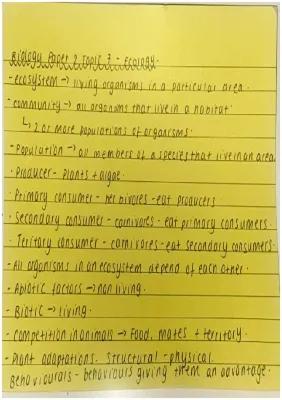 Biology Paper 2 Topic 3 - Ecology.
- ecosystem → living organisms in a particular area.
- community → all organisms that live in a habitat.
↳ 2 or more populations of organisms.
- Population → all members of a species that live in an area.
· Producer - Plants + algae.
· Primary consumer - herbivores - eat producers
· Secondary consumer - carnivores - eat primary consumers.
· Teritary consumer - carnivores - eat secondary consumers.
- All organisms in an ecosystem depend of each other.
- Abiotic factors → non living.
- Biotic → living.
- competition in animals → Food, mates + territory.
- Plant adaptations. Structural - physical.
Behaviourals - behaviours giving them an advantage.